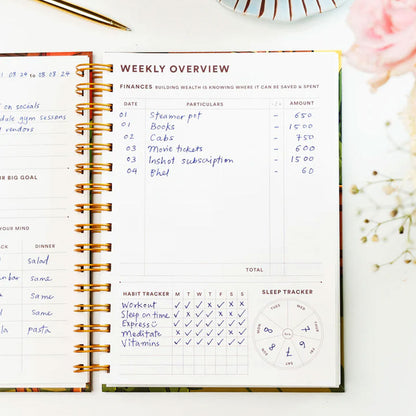 01 08 24 to 08 08 24
on socials
dule gym sessions
vendors
R BIG GOAL
YOUR MIND
CK DINNER
salad
nbar same
same
same
la pasta
WEEKLY OVERVIEW
FINANCES BUILDING WEALTH IS KNOWING WHERE IT CAN BE SAVED & SPENT
DATE PARTICULARS - / + AMOUNT
01 Steamer pot - 650
01 Books - 1500
02 Cabs - 750
03 Movie tickets - 600
03 Inshot subscription - 1500
04 Bhel - 60
TOTAL
HABIT TRACKER M T W T F S S
Workout ✓ ✓ ✓ x ✓ x x
Sleep on time
Express C
Meditate
Vitamins
SLEEP TRACKER
MON
TUE
WED
THU
FRI
SAT
SUN
8 7 6 7 8